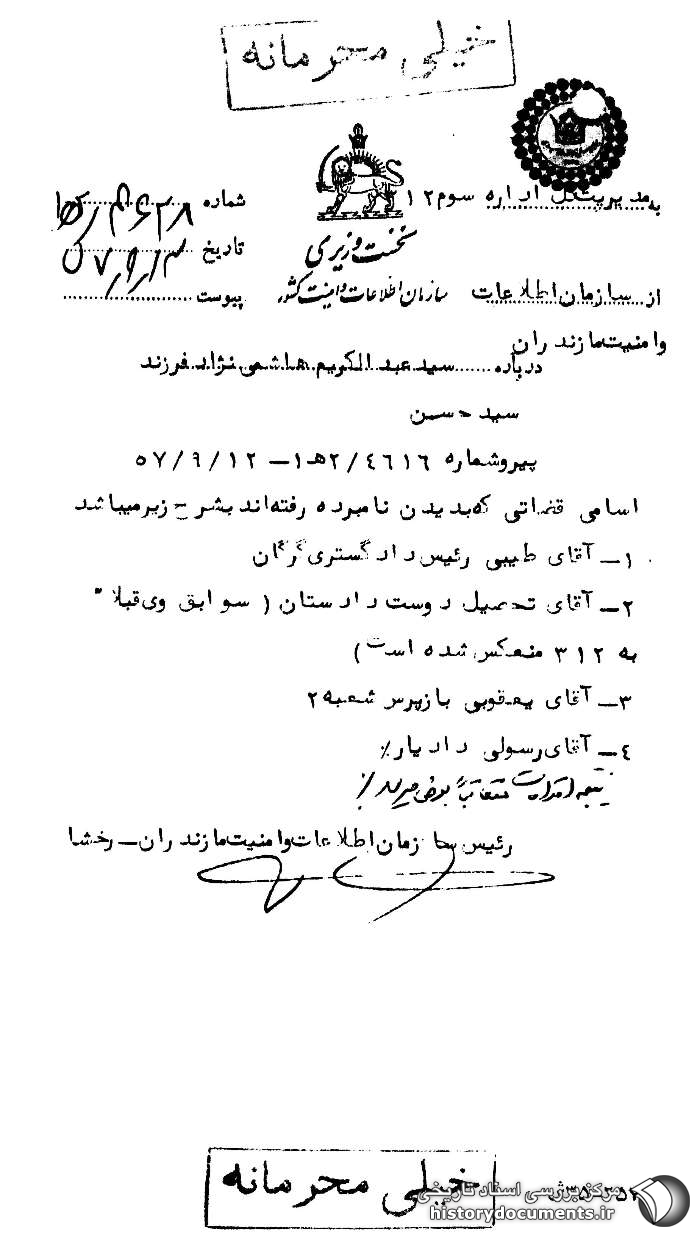 خیلی محرمانه
به مدیریتکل اداره سوم ۳۱۲
شماره ۴۶۲۸
نخست وزیری
تاریخ ۵۷/۹/۱۳
از سازمان اطلاعات
سازمان اطلاعات و امنیت کشور
پیوست
وامنیت مازندران
درباره سید عبدالکریم هاشمی نژاد فرزند
سید حسن
پیروشماره ۲/٤٦١٦هـ۱ــ ۵۷/۹/۱۲
اسامی قضاتی که بدیدن نامبرده رفته اند بشرح زیر میباشد
۱ــ آقای طیبی رئیس دادگستری گرگان
۲ــ آقای تحصیل دوست دادستان ( سوابق وی قبلا"
به ۳۱۲ منعکس شده است )
۳ــ آقای یعقوبی بازپرس شعبه ۲
٤ــ آقای رسولی دادیار ٪
نتیجه اقدامات متعاقباً بعرض میرسد ٪
رئیس سازمان اطلاعات وامنیت مازندران ــ رخشا
خیلی محرمانه
مرکز بررسی اسناد تاریخی
historydocuments.ir